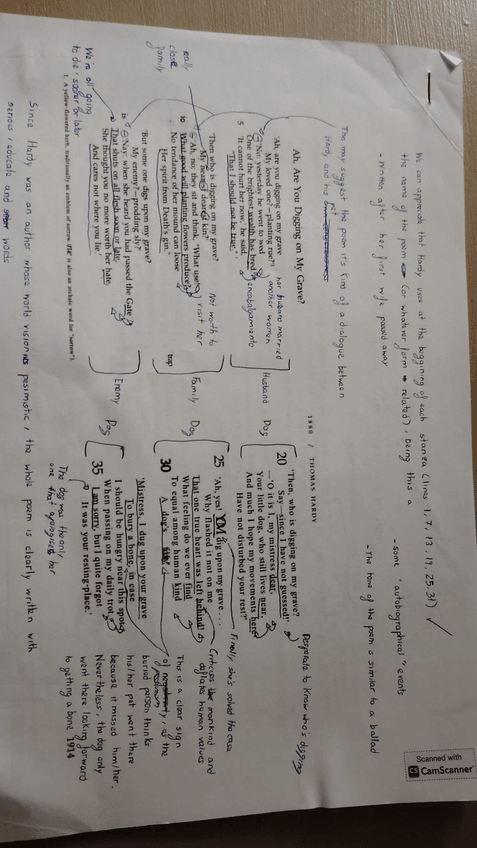 We can appreciate that Hardy uses at the beggining of each stanza (lines 1, 7, 13, 19, 25, 31)
the name of the poem (or whatever form related), being this a
- Written after her first wife passed away
- some "autobiographical" events
- The tone of the poem is similar to a ballad
The may suggest the poem it's kind of a dialogue between
Hardy and his pet
1880 / THOMAS HARDY
Ah, Are You Digging on My Grave?
'Ah, are you digging on my grave
My loved one? – planting rue?'
– 'No: yesterday he went to wed
One of the brightest wealth has bred.
5
"It cannot hurt her now," he said,
"That I should not be true."'
her husband married
another women
encabalgamiento
Husband
'Then who is digging on my grave?
My nearest dearest kin?'
– 'Ah, no: they sit and think, "What use!
10
What good will planting flowers produce?
No tendance of her mound can loose
Her spirit from Death's gin."'
trap
really
close
family
Not worth to
visit her
Family
'But some one digs upon my grave?
My enemy? – prodding sly?'
15
– 'Nay: when she heard you had passed the Gate
That shuts on all flesh soon or late,
She thought you no more worth her hate,
And cares not where you lie.'
We're all going
to die, sooner or later
Enemy
1. A yellow-flowered herb, traditionally an emblem of sorrow
'Then, who is digging on my grave?
20
Say – since I have not guessed!'
– 'O it is I, my mistress dear,
Your little dog, who still lives near,
And much I hope my movements here
Have not disturbed your rest?'
Dog
Desperate to know who's digging
25
'Ah, yes! You dig upon my grave . . .
Why flashed it not on me
That one true heart was left behind!
What feeling do we ever find
To equal among human kind
30
A dog's fidelity!'
Dog
Finally, she's solved the case
Criticises mankind and
human values
'Mistress, I dug upon your grave
To bury a bone, in case
I should be hungry near this spot
When passing on my daily trot.
35
I am sorry, but I quite forgot
It was your resting-place.'
Dog
1914
This is a clear sign
of, as the
buried person thinks
his/her pet went there
because it missed him/her.
Nevertheless, the dog only
went there looking forward
to getting a bone
The dog was the only
one that apologises her
Since Hardy was an author whose world vision is pesimistic, the whole poem is clearly written with
serious, educate and words
Scanned with
CS CamScanner